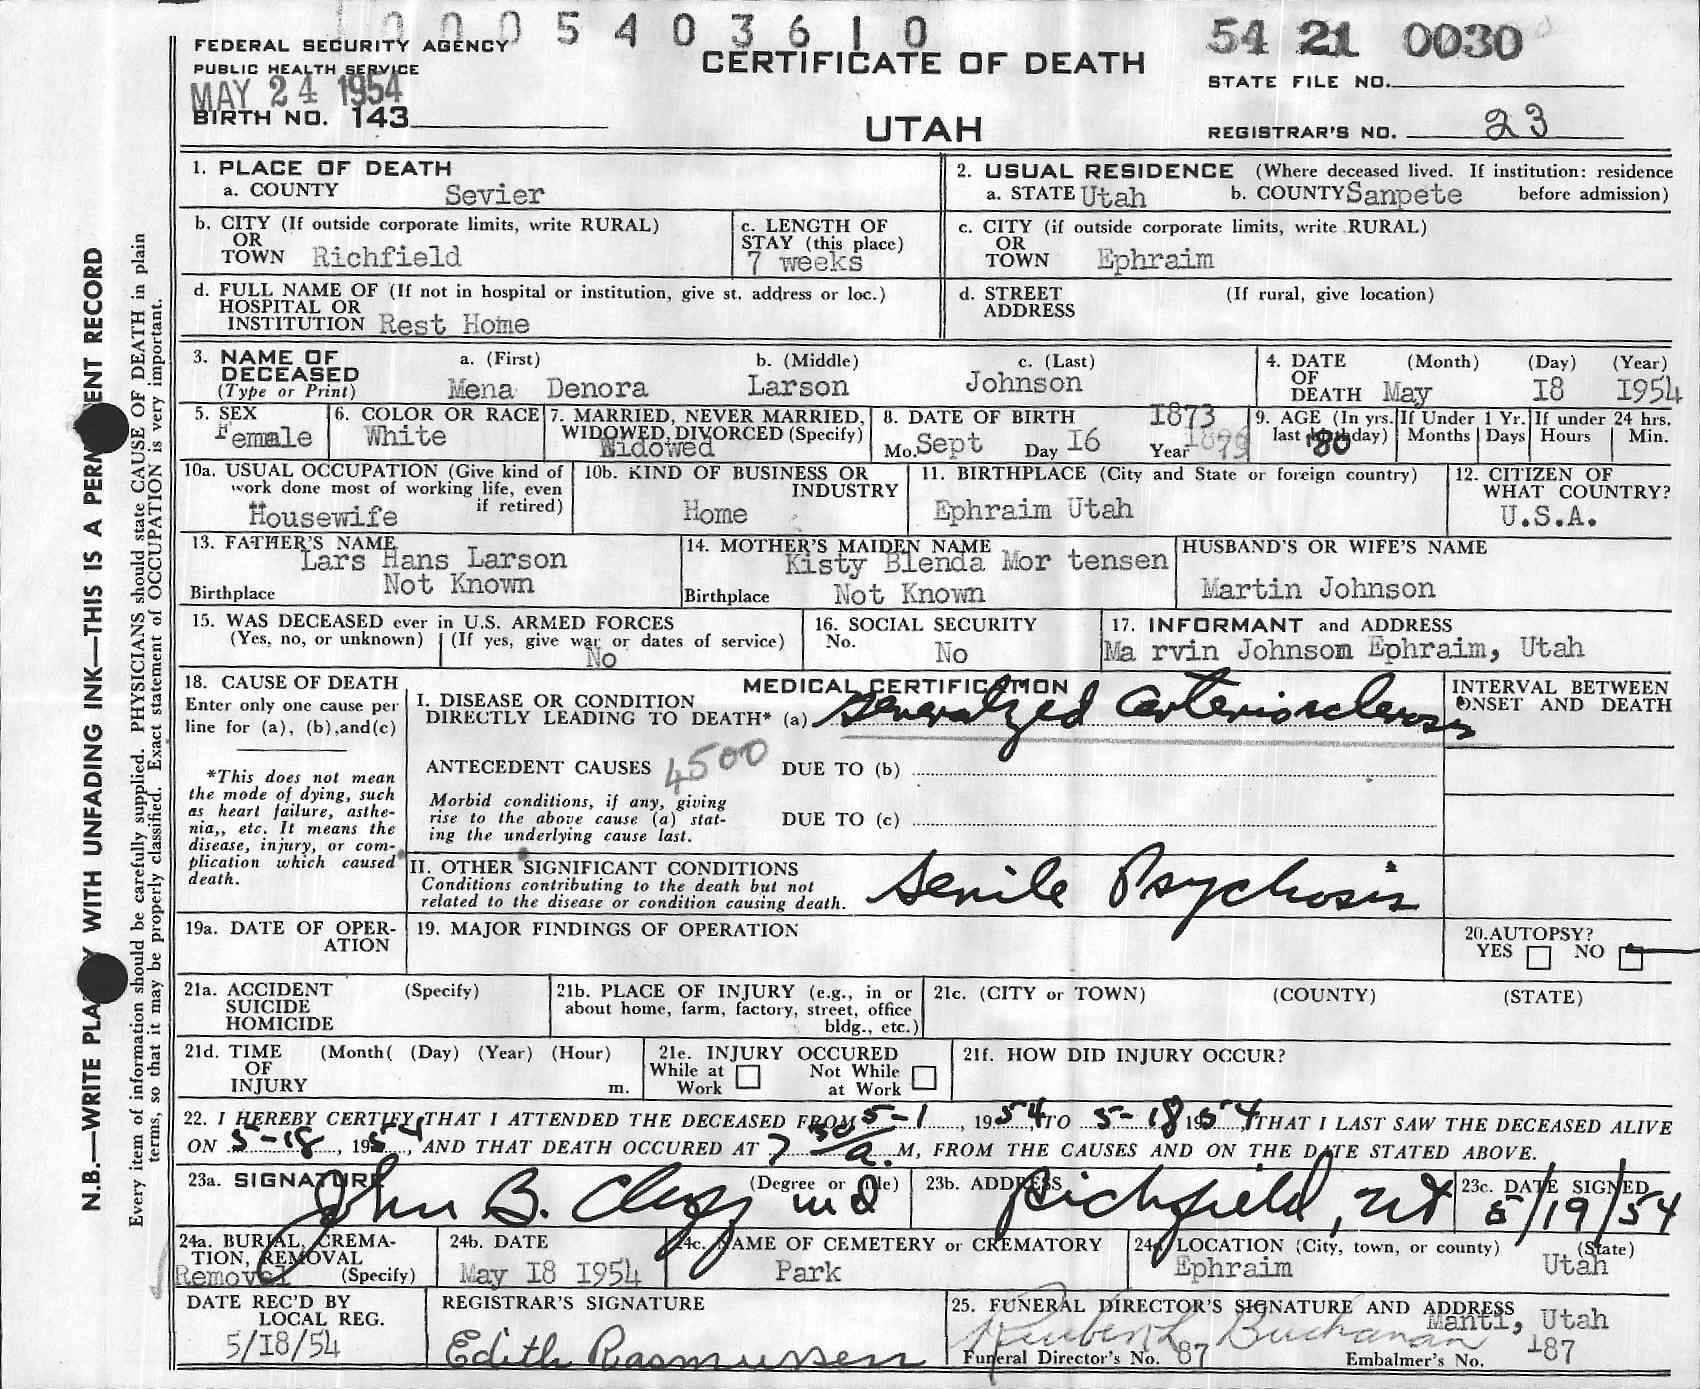 1 0 0 0 5 4 0 3 6 1 0
54 21 0030
FEDERAL SECURITY AGENCY
PUBLIC HEALTH SERVICE
MAY 24 1954
BIRTH NO. 143
CERTIFICATE OF DEATH
UTAH
STATE FILE NO.
REGISTRAR'S NO. 23
N.B.—WRITE PLA Y WITH UNFADING INK—THIS IS A PERM ENT RECORD
Every item of information should be carefully supplied. PHYSICIANS should state CAUSE OF DEATH in plain
terms, so that it may be properly classified. Exact statement of OCCUPATION is very important.
1. PLACE OF DEATH
a. COUNTY Sevier
2. USUAL RESIDENCE (Where deceased lived. If institution: residence
a. STATE Utah b. COUNTY Sanpete before admission)
b. CITY (If outside corporate limits, write RURAL)
OR
TOWN Richfield
c. LENGTH OF
STAY (this place)
7 weeks
c. CITY (if outside corporate limits, write RURAL)
OR
TOWN Ephraim
d. FULL NAME OF (If not in hospital or institution, give st. address or loc.)
HOSPITAL OR
INSTITUTION Rest Home
d. STREET (If rural, give location)
ADDRESS
3. NAME OF
DECEASED
(Type or Print)
a. (First) b. (Middle) c. (Last)
Mena Denora Larson Johnson
4. DATE (Month) (Day) (Year)
OF
DEATH May I8 I954
5. SEX
Female
6. COLOR OR RACE
White
7. MARRIED, NEVER MARRIED,
WIDOWED, DIVORCED (Specify)
Widowed
8. DATE OF BIRTH I873
Mo. Sept Day I6 Year
9. AGE (In yrs. last birthday) 80
If Under 1 Yr.
Months Days
If under 24 hrs.
Hours Min.
10a. USUAL OCCUPATION (Give kind of
work done most of working life, even
if retired)
Housewife
10b. KIND OF BUSINESS OR
INDUSTRY
Home
11. BIRTHPLACE (City and State or foreign country)
Ephraim Utah
12. CITIZEN OF
WHAT COUNTRY?
U.S.A.
13. FATHER'S NAME
Lars Hans Larson
Birthplace Not Known
14. MOTHER'S MAIDEN NAME
Kisty Blenda Mor tensen
Birthplace Not Known
HUSBAND'S OR WIFE'S NAME
Martin Johnson
15. WAS DECEASED ever in U.S. ARMED FORCES
(Yes, no, or unknown) (If yes, give war or dates of service)
No
16. SOCIAL SECURITY
No.
No
17. INFORMANT and ADDRESS
Ma rvin Johnson Ephraim, Utah
18. CAUSE OF DEATH
Enter only one cause per
line for (a), (b), and(c)
*This does not mean
the mode of dying, such
as heart failure, asthe-
nia,, etc. It means the
disease, injury, or com-
plication which caused
death.
MEDICAL CERTIFICATION
I. DISEASE OR CONDITION
DIRECTLY LEADING TO DEATH* (a) Generalized arteriosclerosis
ANTECEDENT CAUSES 4500 DUE TO (b)
Morbid conditions, if any, giving
rise to the above cause (a) stat-
ing the underlying cause last.
DUE TO (c)
II. OTHER SIGNIFICANT CONDITIONS
Conditions contributing to the death but not
related to the disease or condition causing death.
Senile Psychosis
INTERVAL BETWEEN
ONSET AND DEATH
19a. DATE OF OPER-
ATION
19. MAJOR FINDINGS OF OPERATION
20. AUTOPSY?
YES NO
21a. ACCIDENT (Specify)
SUICIDE
HOMICIDE
21b. PLACE OF INJURY (e.g., in or
about home, farm, factory, street, office
bldg., etc.)
21c. (CITY or TOWN) (COUNTY) (STATE)
21d. TIME (Month( (Day) (Year) (Hour)
OF
INJURY m.
21e. INJURY OCCURED
While at Work Not While at Work
21f. HOW DID INJURY OCCUR?
22. I HEREBY CERTIFY THAT I ATTENDED THE DECEASED FROM 5-1, 1954, TO 5-18 1954, THAT I LAST SAW THE DECEASED ALIVE
ON 5-18, 1954, AND THAT DEATH OCCURED AT 7 30 a. M, FROM THE CAUSES AND ON THE DATE STATED ABOVE.
23a. SIGNATURE (Degree or title)
John B. Clegg md
23b. ADDRESS
Richfield, Ut
23c. DATE SIGNED
5/19/54
24a. BURIAL, CREMA-
TION, REMOVAL
Removal (Specify)
24b. DATE
May I8 I954
24c. NAME OF CEMETERY or CREMATORY
Park
24d. LOCATION (City, town, or county) (State)
Ephraim Utah
DATE REC'D BY
LOCAL REG.
5/I8/54
REGISTRAR'S SIGNATURE
Edith Rasmussen
25. FUNERAL DIRECTOR'S SIGNATURE AND ADDRESS
Manti, Utah
Buchanan
Funeral Director's No. 87 Embalmer's No. 187